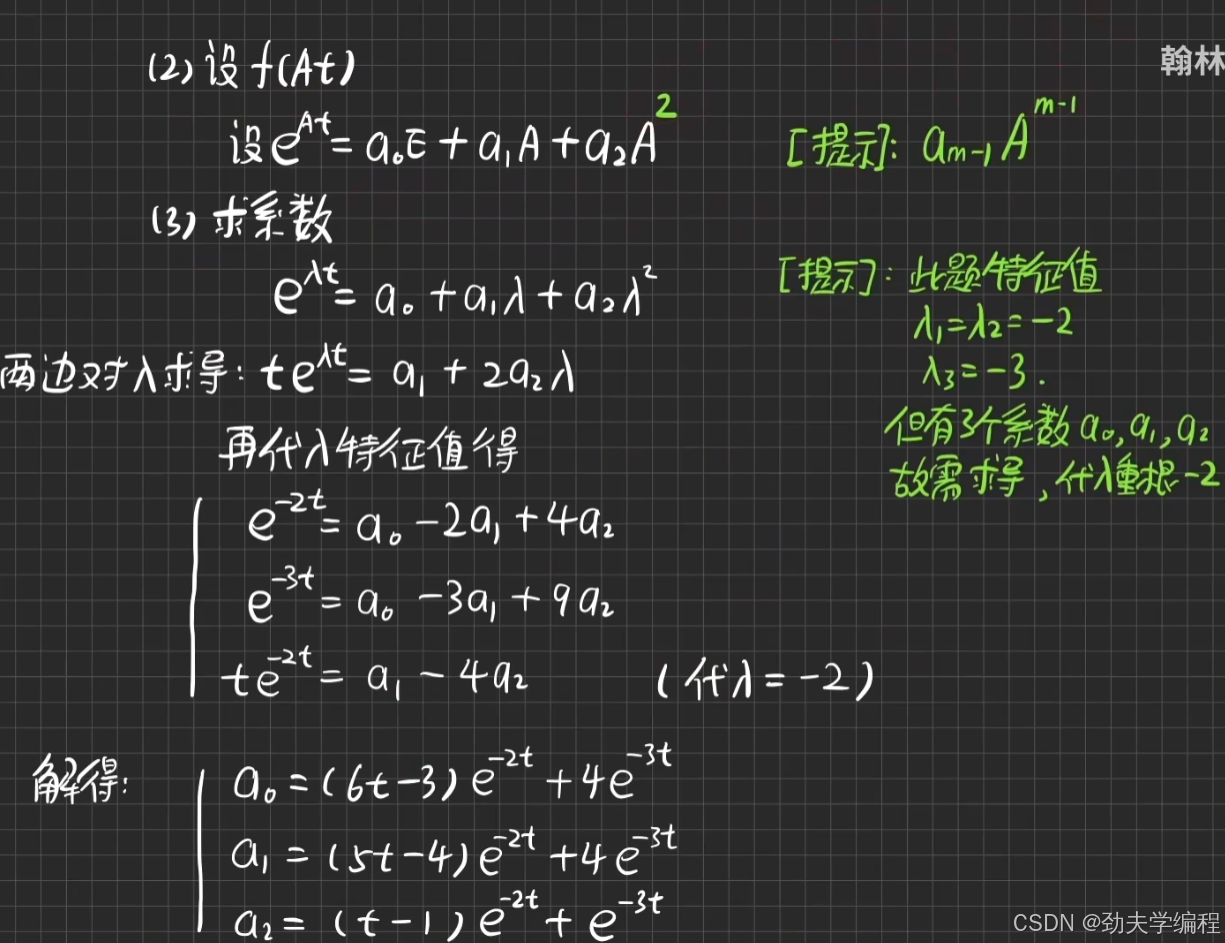 (2) 设 f(At)
翰林
设 e^{At} = a₀E + a₁A + a₂A²
[提示]: a_{m-1}A^{m-1}
(3) 求系数
e^{λt} = a₀ + a₁λ + a₂λ²
[提示]: 此题特征值
λ₁=λ₂=-2
λ₃=-3.
但有3个系数 a₀,a₁,a₂
故需求导,代入重根-2
两边对λ求导: te^{λt} = a₁ + 2a₂λ
再代入特征值得
e^{-2t} = a₀ - 2a₁ + 4a₂
e^{-3t} = a₀ - 3a₁ + 9a₂
te^{-2t} = a₁ - 4a₂ (代λ=-2)
解得: a₀ = (6t-3)e^{-2t} + 4e^{-3t}
a₁ = (5t-4)e^{-2t} + 4e^{-3t}
a₂ = (t-1)e^{-2t} + e^{-3t}
CSDN @劲夫学编程